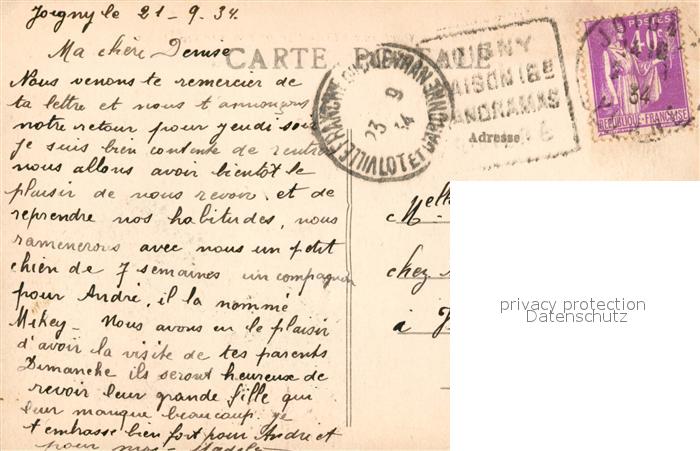 Joigny le 21-9.34
Ma chère Denise
CARTE POSTALE
Nous venons te remercier de
ta lettre et nous t'annonçons
notre retour pour jeudi soir
je suis bien contente de rentrer
nous allons avoir bientôt le
plaisir de nous revoir et de
reprendre nos habitudes, nous
ramenerons avec nous un petit
chien de 7 semaines un compagnon
pour André, il la nommé
Mikey - Nous avons eu le plaisir
d'avoir la visite de tes parents
Dimanche ils seront heureux de
revoir leur grande fille qui
leur manque beaucoup je
t'embrasse bien fort pour André et
pour moi -
VILLEFRANCHE DU QUEYRAN
LOT ET GARONNE
23 9
34
IGNY
AISON 18e
ANORAMAS
Adresse
POSTES
40c
34
REPUBLIQUE FRANÇAISE
Melle
chez
à J
privacy protection
Datenschutz